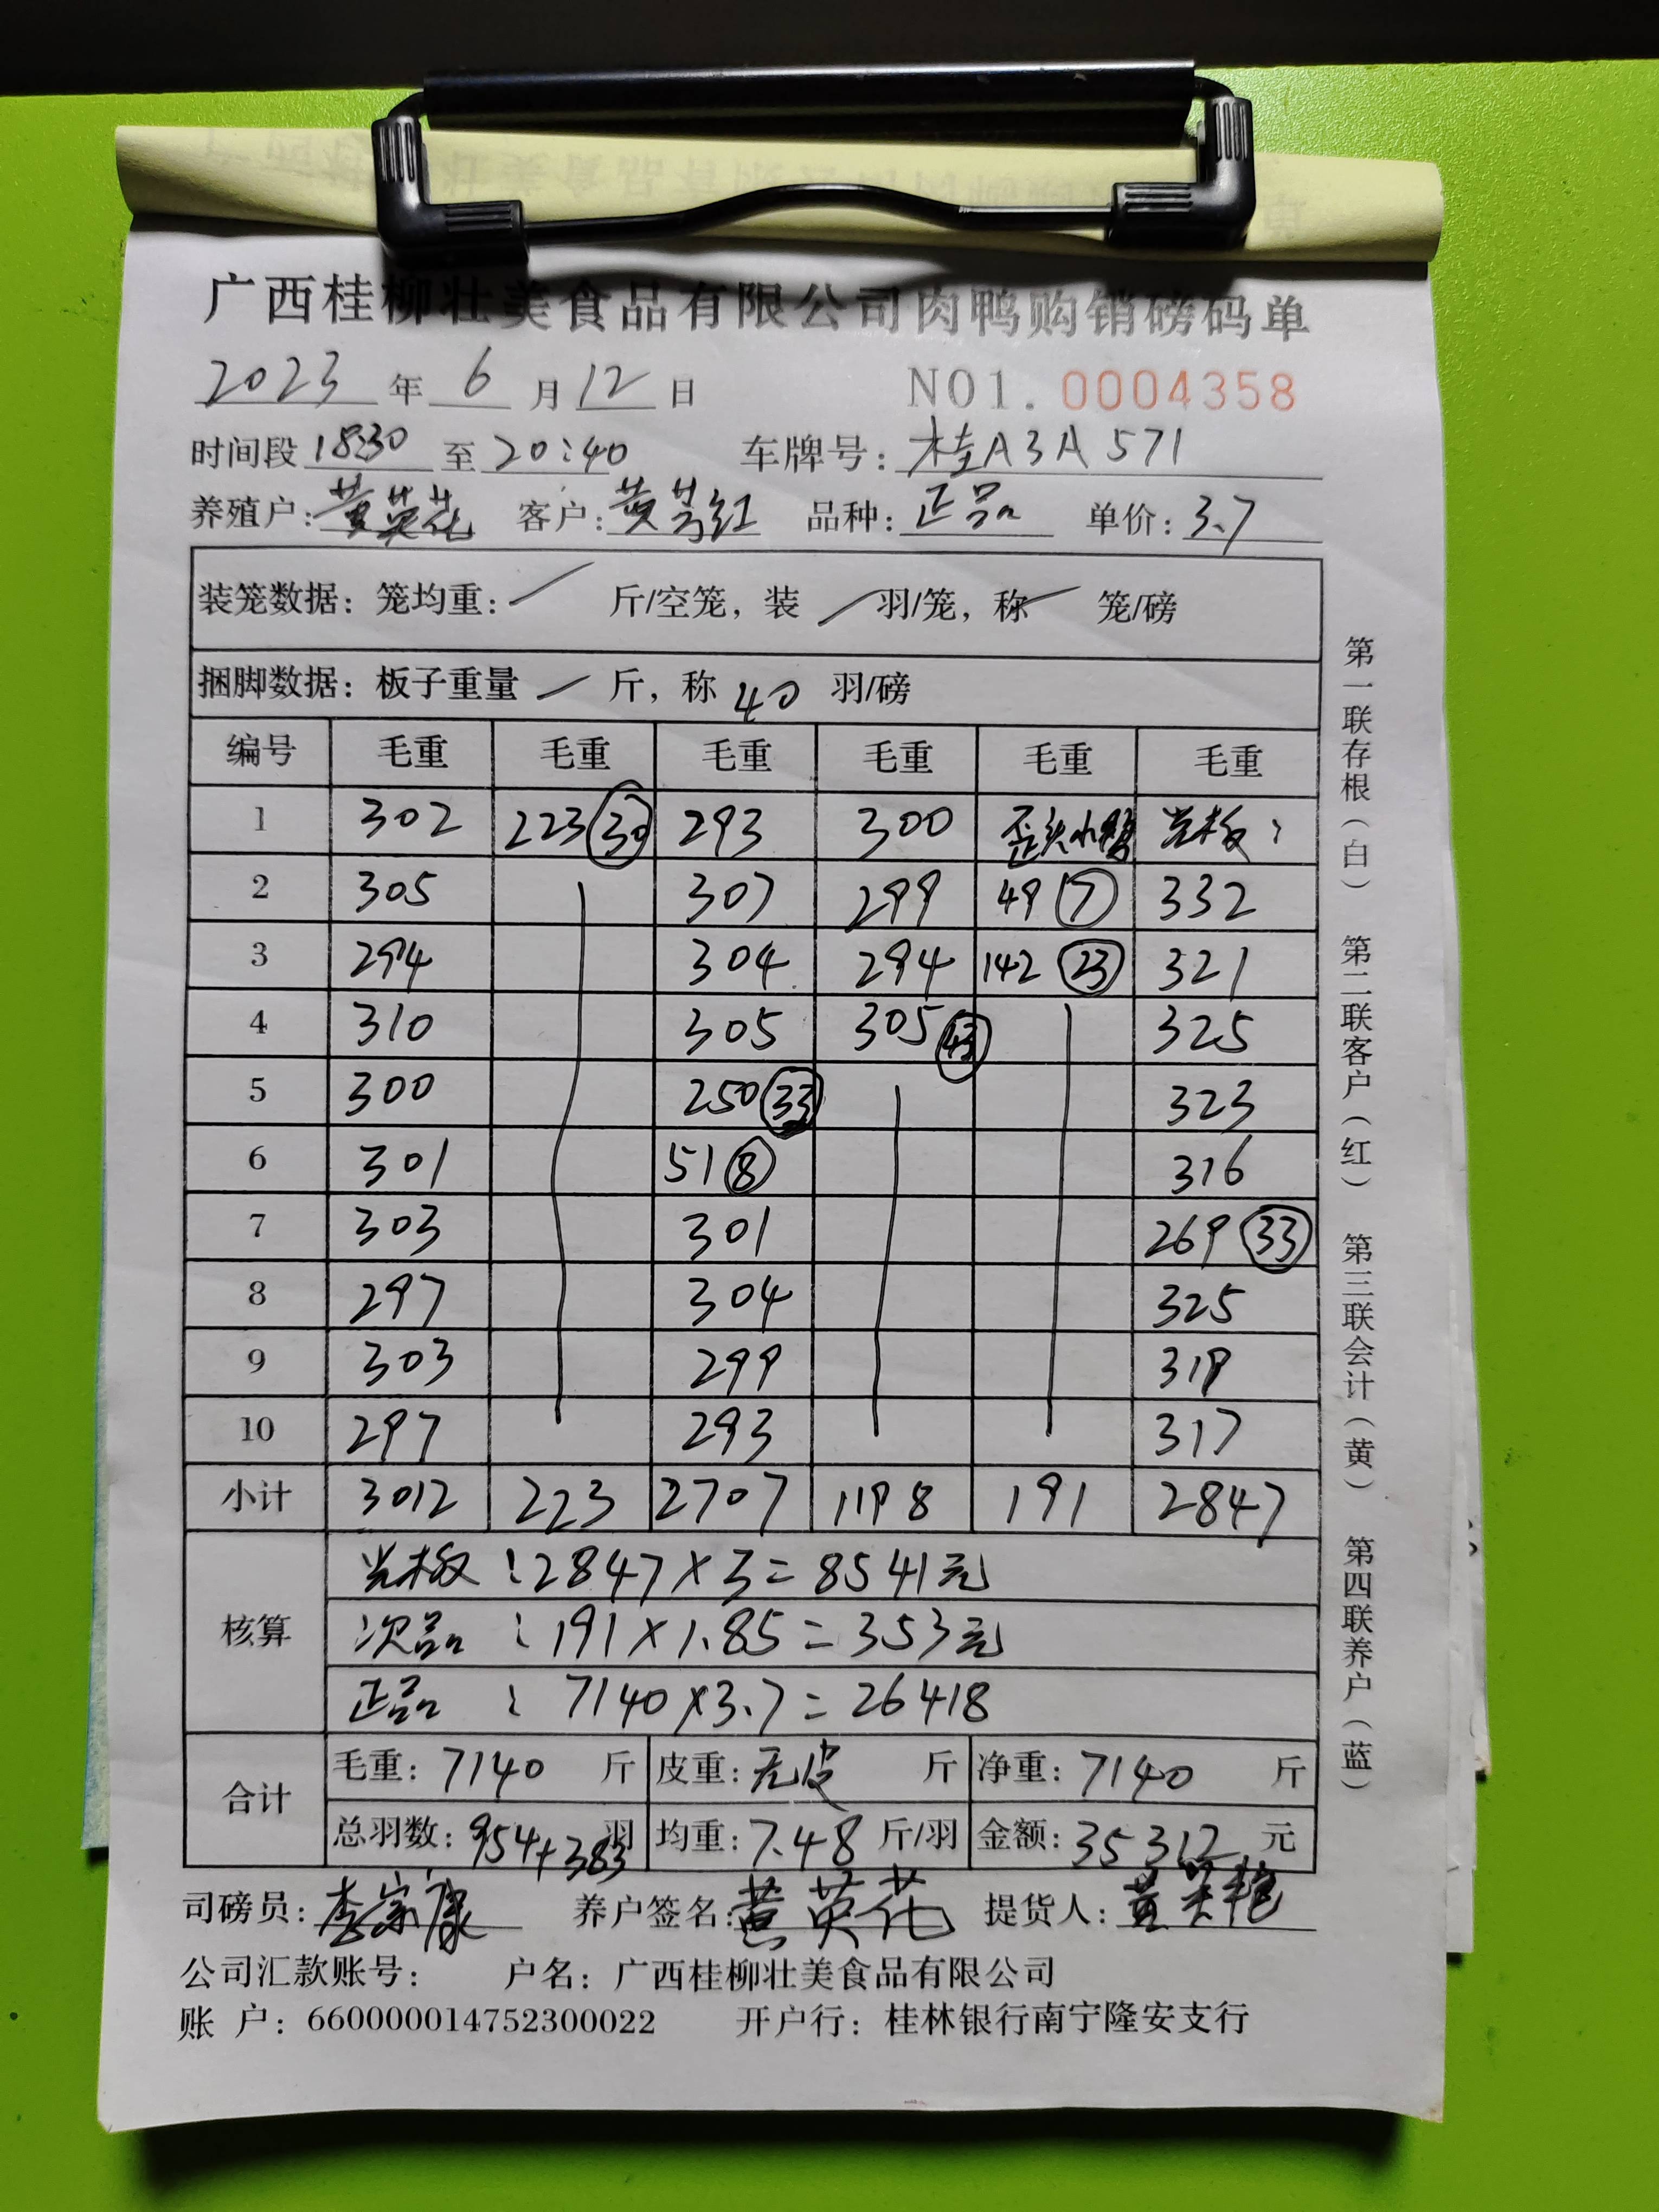 广西桂柳壮美食品有限公司肉鸭购销磅码单
2023 年 6 月 12 日 NO1. 0004358
时间段 18:30 至 20:40 车牌号: 桂A3A571
养殖户: 黄英花 客户: 黄 红 品种: 正品 单价: 3.7
装笼数据: 笼均重: / 斤/空笼, 装 / 羽/笼, 称 / 笼/磅
捆脚数据: 板子重量 / 斤, 称 40 羽/磅
编号 毛重 毛重 毛重 毛重 毛重 毛重
1 302 223 30 293 300 歪头小鸭 光板:
2 305 307 299 49 7 332
3 294 304 294 142 23 321
4 310 305 305 43 325
5 300 250 33 323
6 301 51 8 316
7 303 301 269 33
8 297 304 325
9 303 299 319
10 297 293 317
小计 3012 223 2707 1198 191 2847
核算
光板: 2847×3=8541元
次品: 191×1.85=353元
正品: 7140×3.7=26418
合计
毛重: 7140 斤 皮重: 无皮 斤 净重: 7140 斤
总羽数: 954+383 羽 均重: 7.48 斤/羽 金额: 35312 元
司磅员: 李宗康 养户签名: 黄英花 提货人: 黄
公司汇款账号: 户名: 广西桂柳壮美食品有限公司
账 户: 660000014752300022 开户行: 桂林银行南宁隆安支行
第一联存根(白) 第二联客户(红) 第三联会计(黄) 第四联养户(蓝)